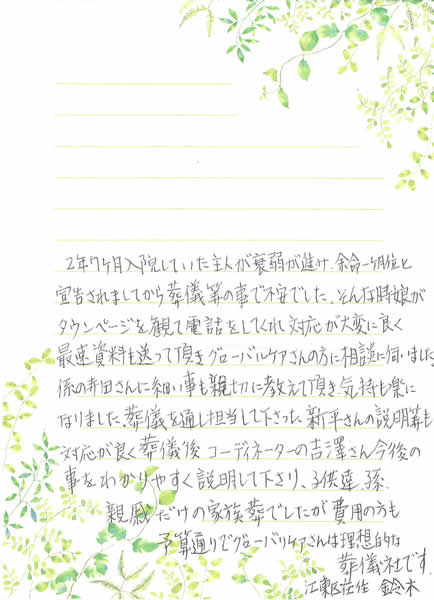 2年7ヶ月入院していた主人が衰弱が進み、余命一ヶ月位と
宣告されましてから葬儀等の事で不安でした。そんな時娘が
タウンページを観て電話をしてくれ対応が大変に良く
最速資料も送って頂きグローバルケアさんの方に相談に伺いました。
係の寺田さんに細い事も親切に教えて頂き気持も楽に
なりました。葬儀を通し担当して下さった新平さんの説明等も
対応が良く葬儀後コーディネーターの吉澤さん今後の
事をわかりやすく説明して下さり、子供達、孫、
親戚だけの家族葬でしたが費用の方も
予算通りでグローバリケアさんは理想的な
葬儀社です。
江東区在住 鈴木